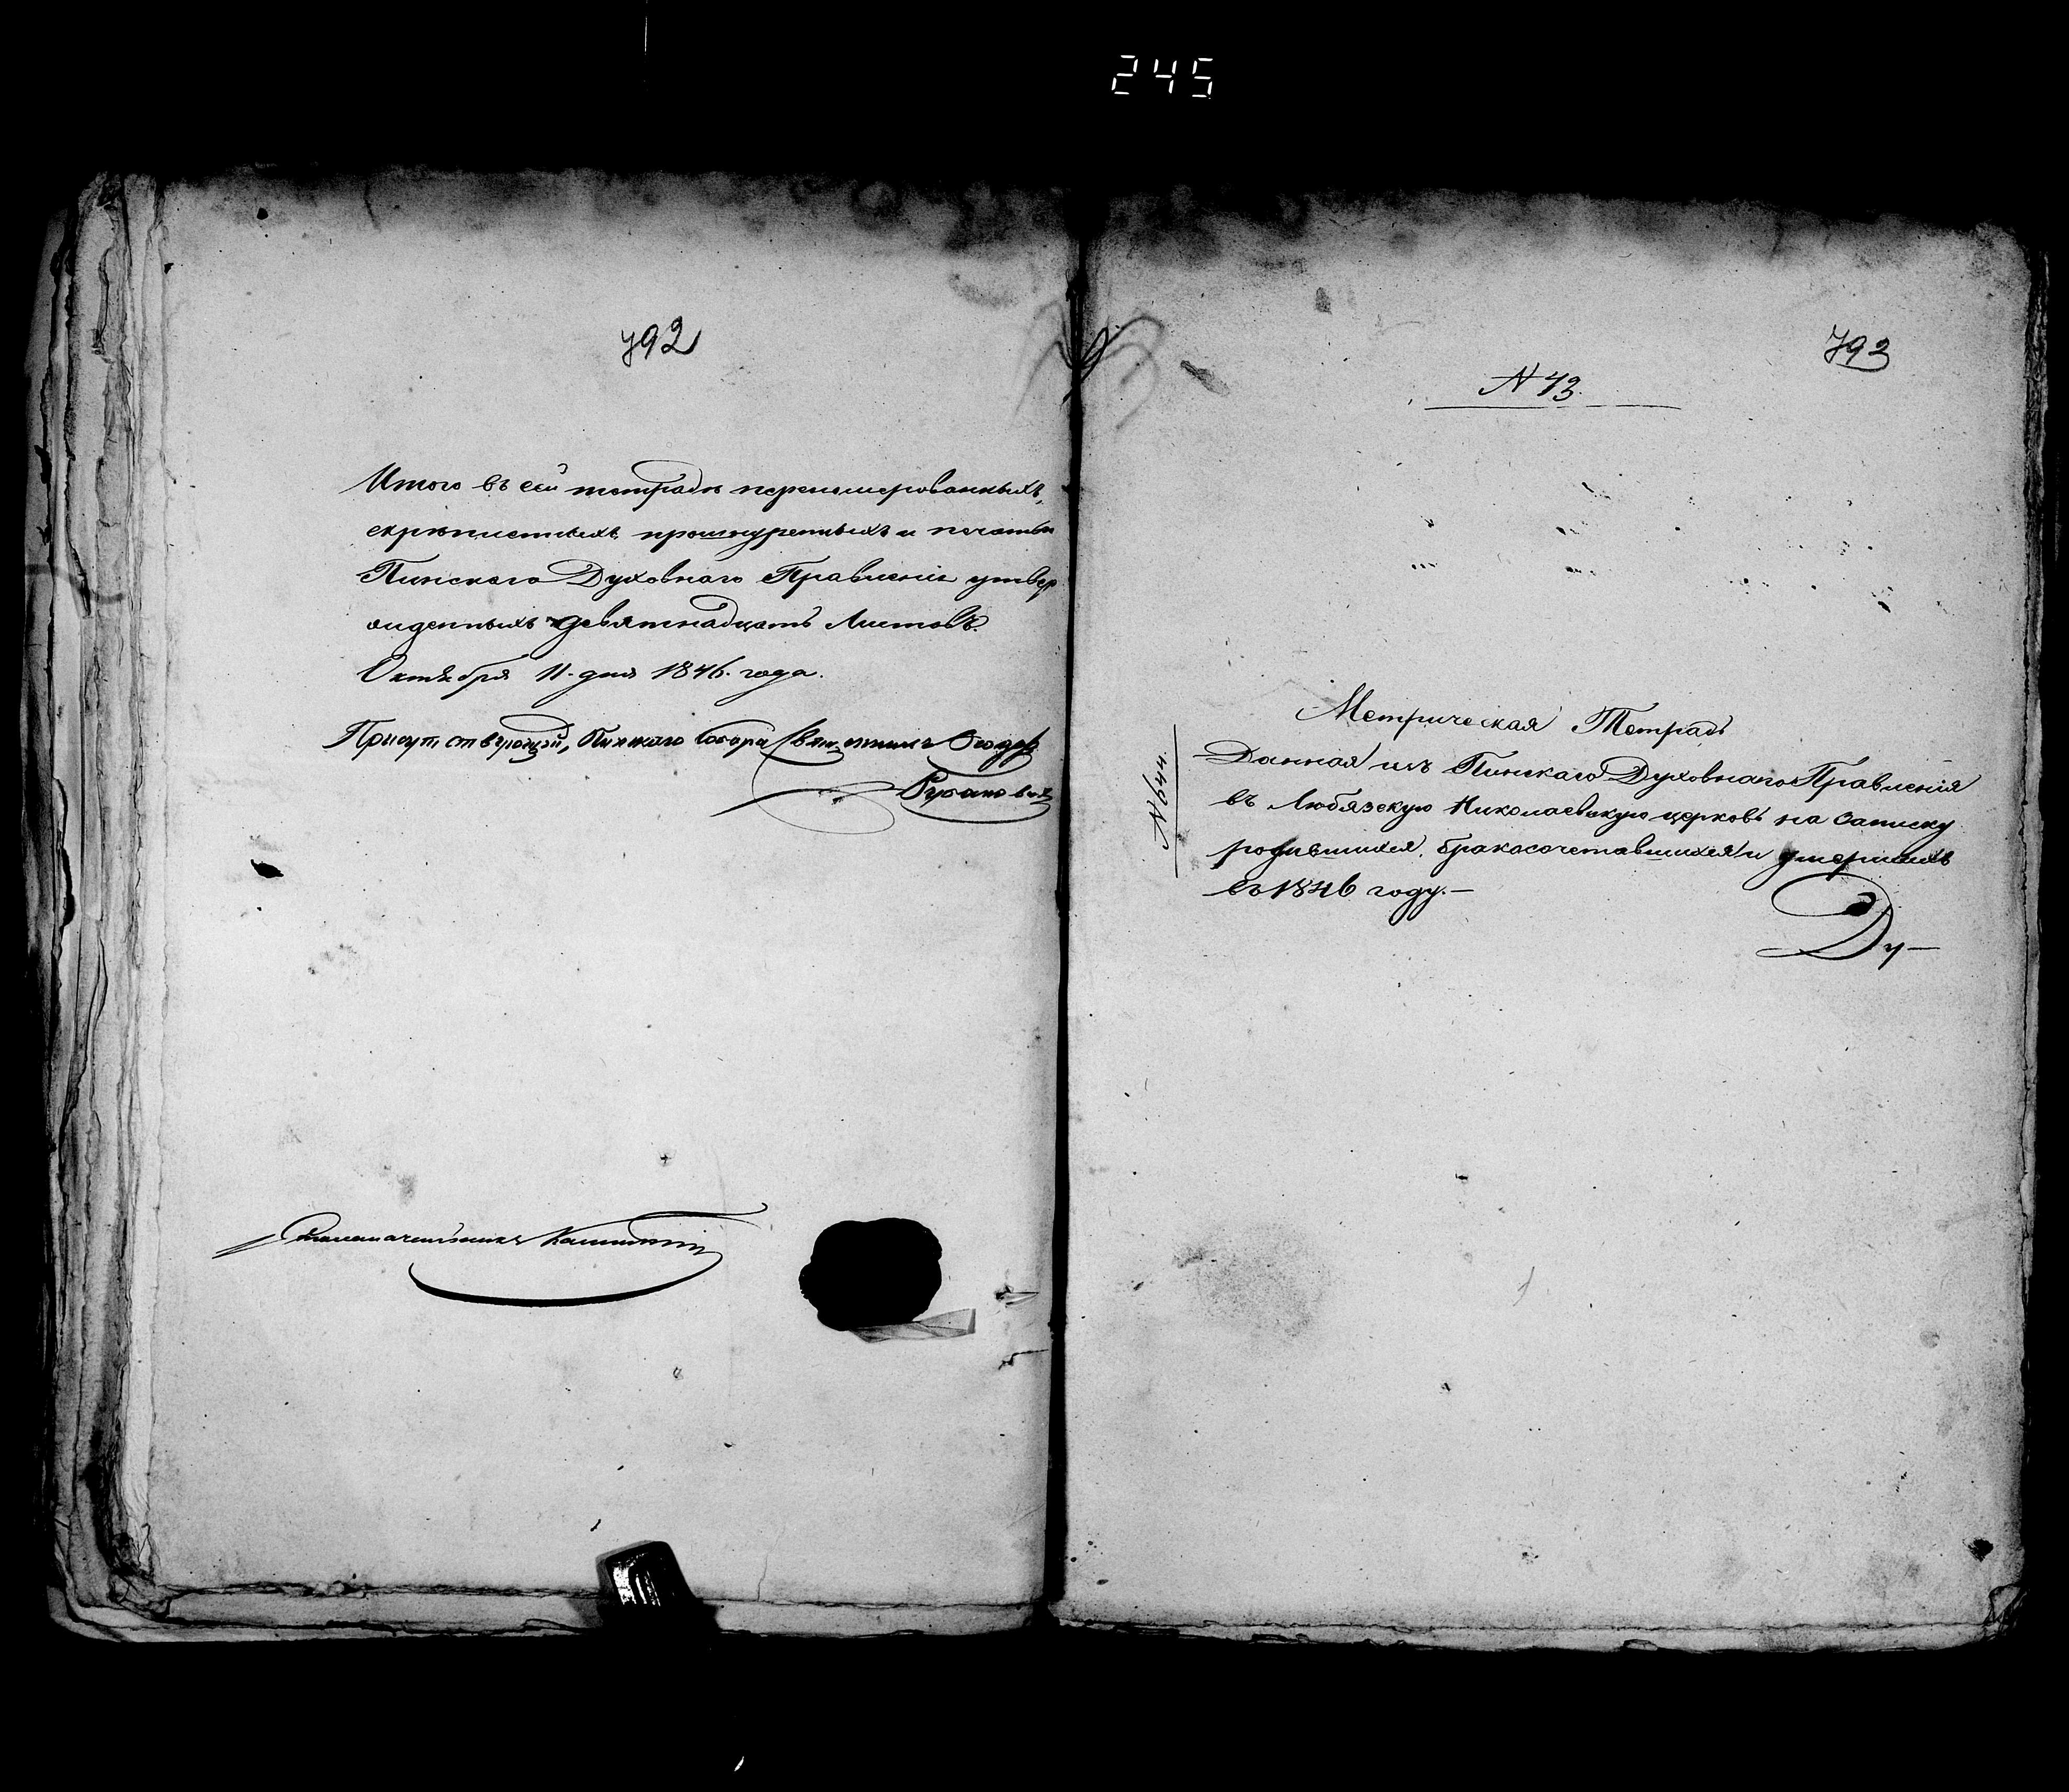 245
792
Итого въ сей тетради перенумерованныхъ,
скрѣпленныхъ, прошнуренныхъ и печатью
Пинскаго Духовнаго Правленія утвер
жденныхъ девятнадцать листовъ.
Октября 11. дня 1846. года.
Присутствующій, Пинскаго Собора Священникъ Ѳеодор
793
N 43.
N 644.
Метрическая Тетрадь
Данная изъ Пинскаго Духовнаго Правленія
въ Любязскую Николаевскую церковь на записку
родившихся, бракосочетавшихся и умершихъ
въ 1846 году.—
Ду—